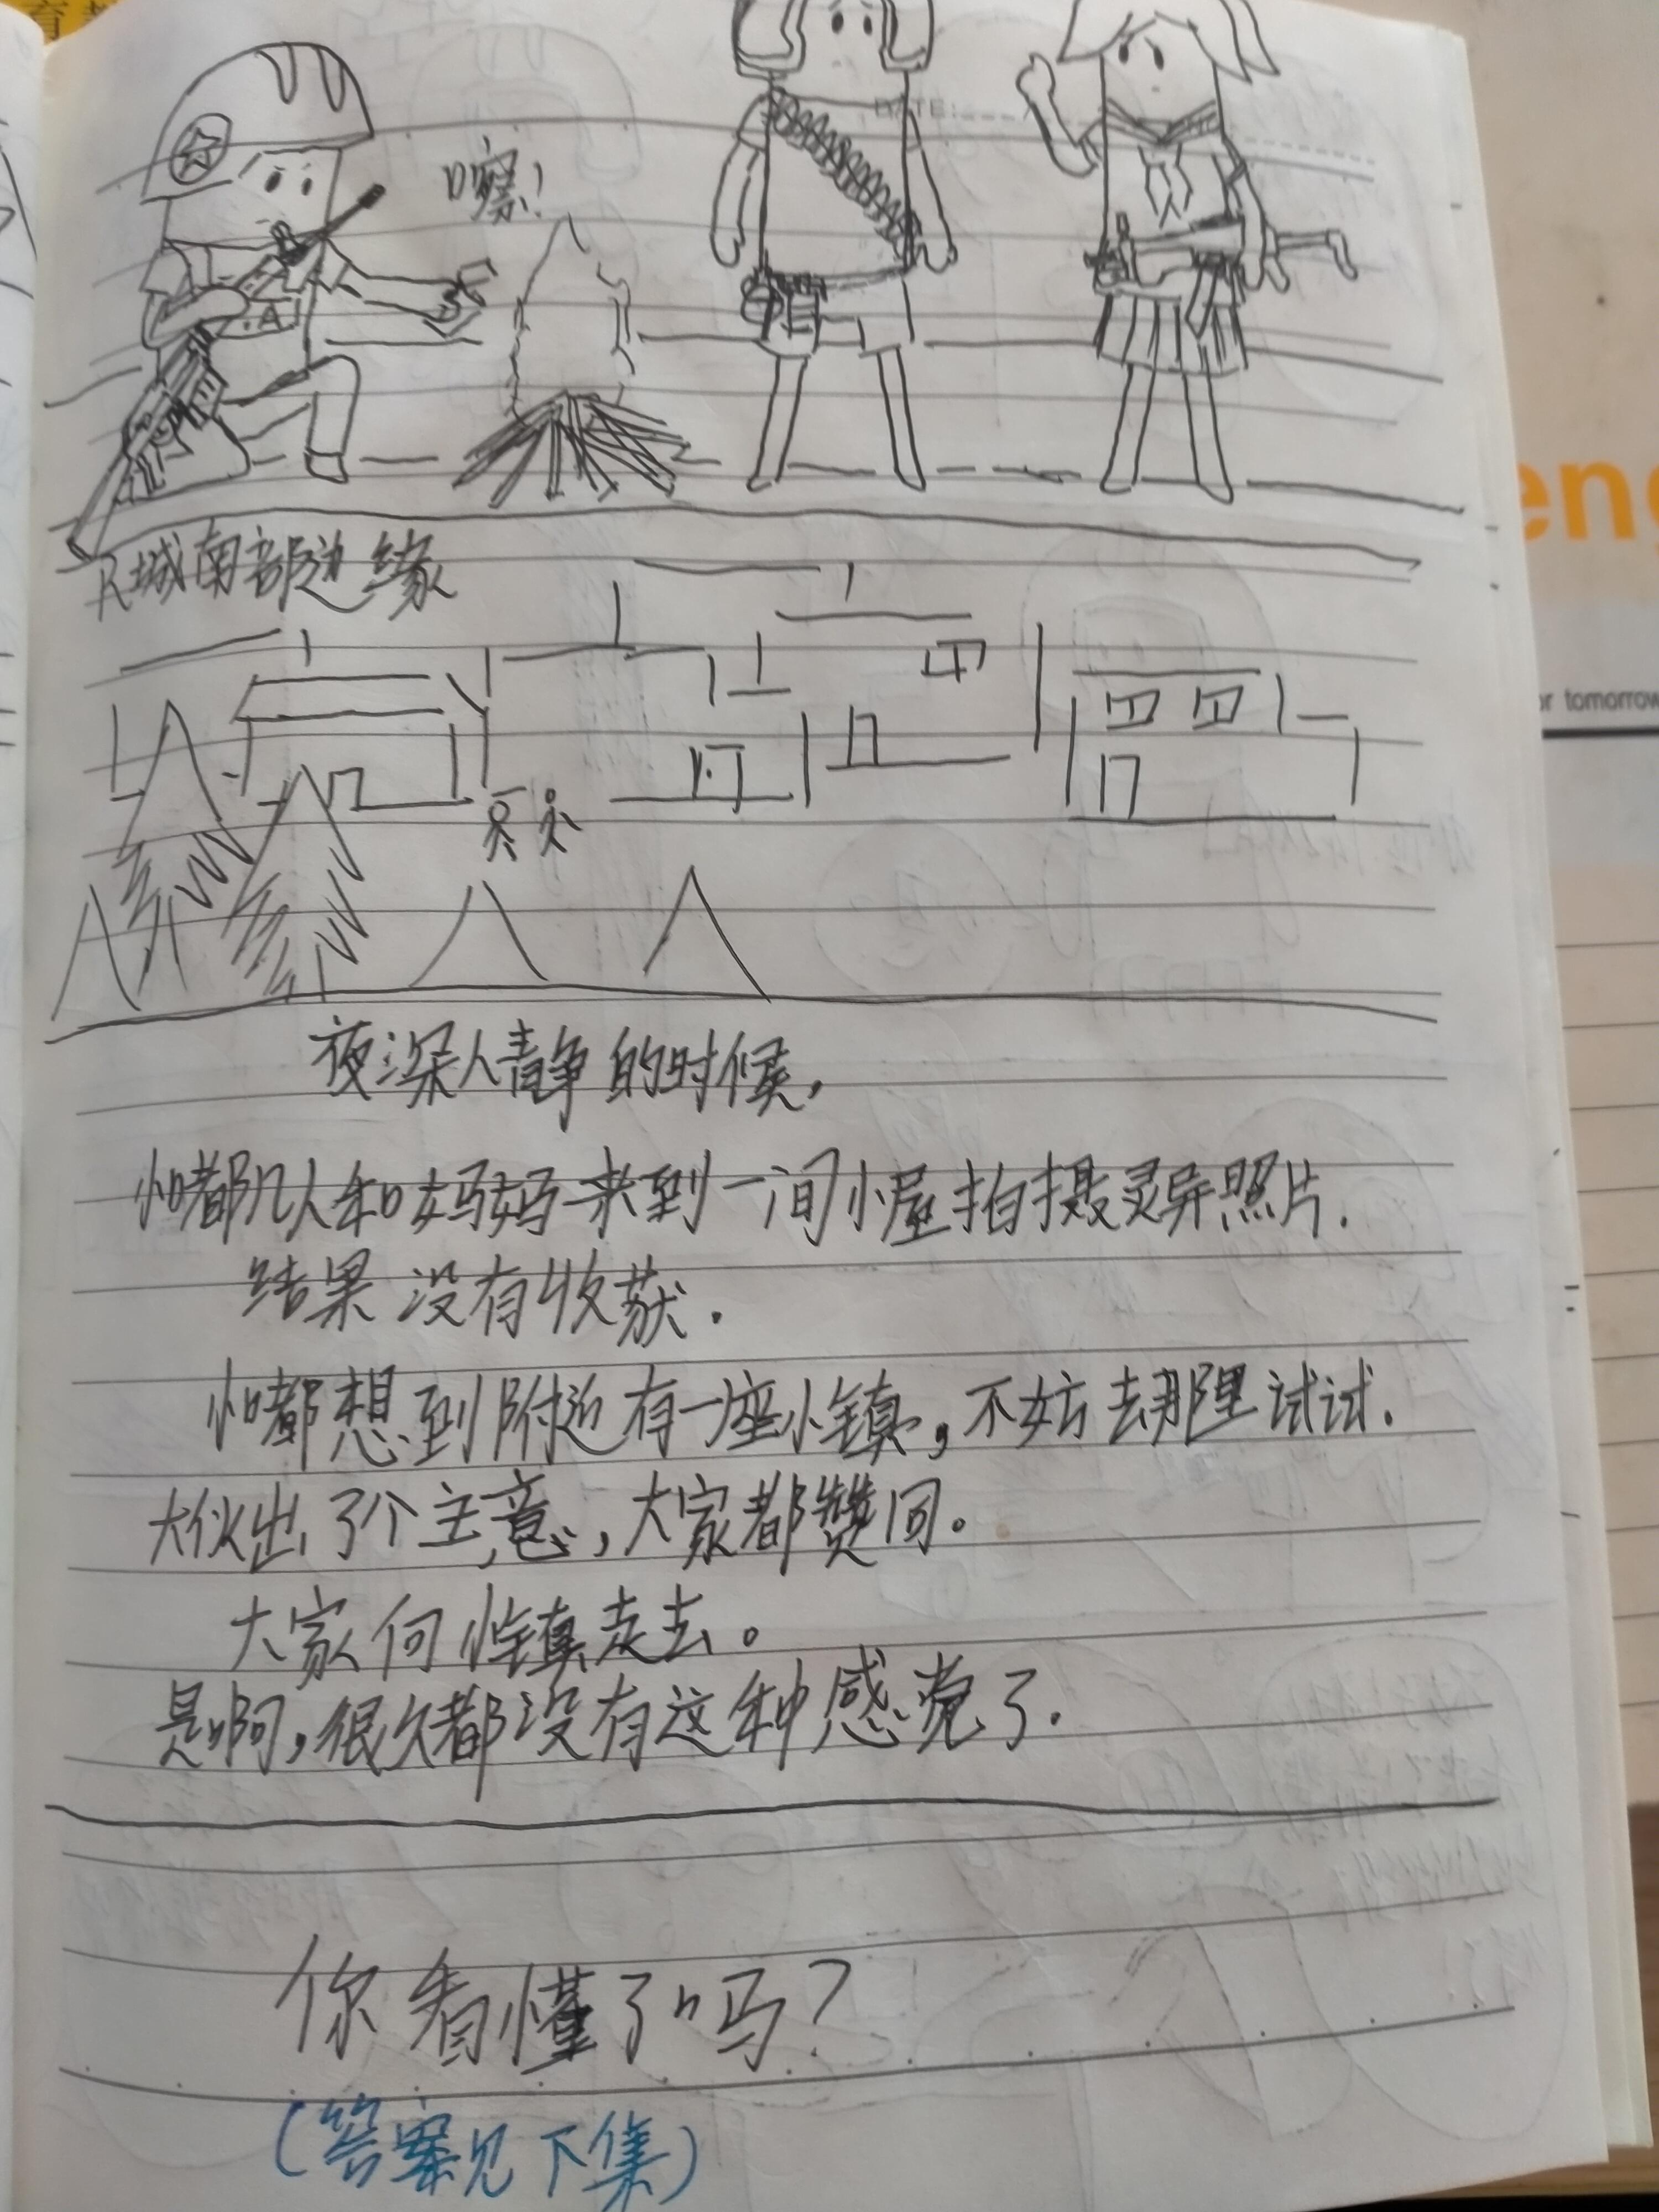 育
DATE:
嚓！
A
R城南部边缘
夜深人青争的时候，
怕都几人和妈妈来到一间小屋拍摄灵异照片.
结果 没有收获.
怕都想到附近有一座小镇，不妨去那里试试.
大伙出了个主意，大家都赞同。
大家向小镇走去。
是啊，很久都没有这种感觉了.
你看懂了吗？
(答案见下集)
eng
or tomorrow